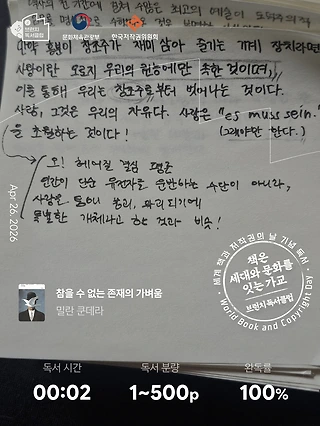 브런치
독서클럽
문화체육관광부 한국저작권위원회
만약 흥분이 창조주가 재미 삼아 즐기는 기계 장치라면
사랑이란 오로지 우리의 권능에만 속한 것이며,
이를 통해 우리는 창조주로부터 벗어나는 것이다.
사랑, 그것은 우리의 자유다. 사랑은 "es muss sein."
을 초월하는 것이다! (그래야만 한다.)
오! 헤어질 결심
인간이 단순 유전자로 운반하는 수단이 아니라,
사랑으로
특별한 개체라고 한 것과 비슷!
Apr 26, 2026
세계 책과 저작권의 날 기념 독서
책은
세대와 문화를
잇는 가교
브런치 독서클럽
World Book and Copyright Day
참을 수 없는 존재의 가벼움
밀란 쿤데라
독서 시간 독서 분량 완독률
00:02 1~500p 100%